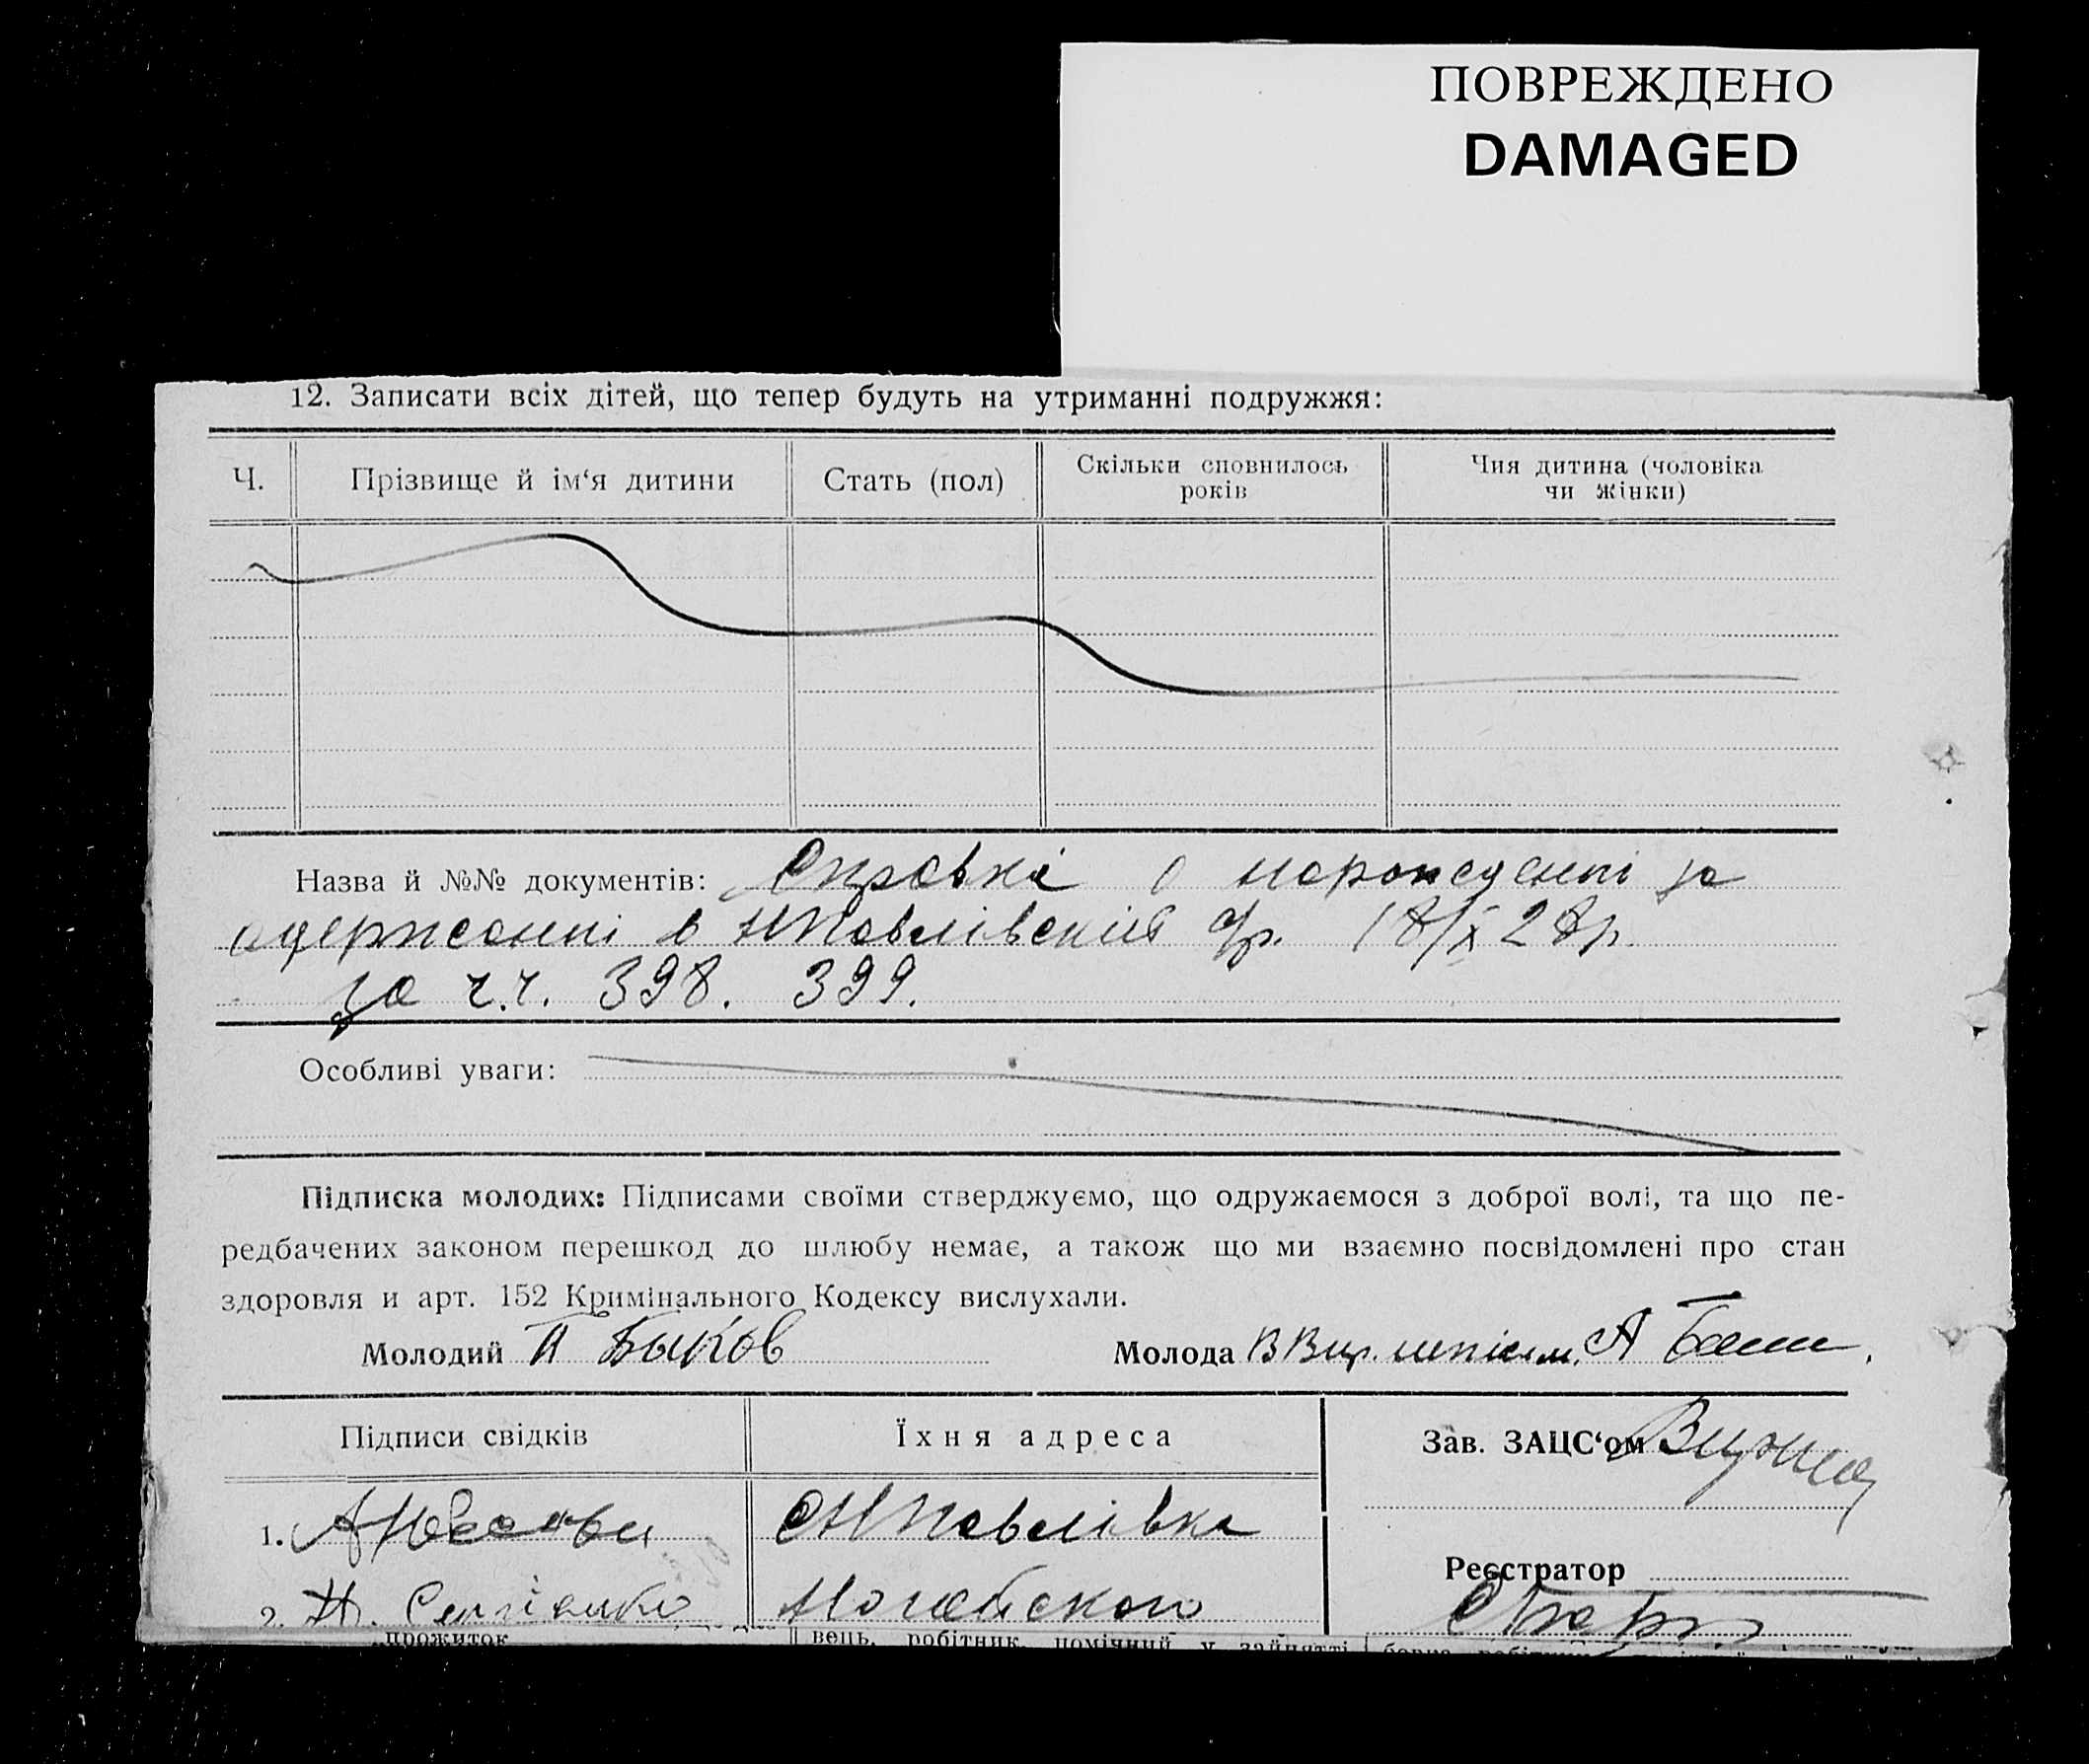 ПОВРЕЖДЕНО
DAMAGED
12. Записати всіх дітей, що тепер будуть на утриманні подружжя:
Ч. Прізвище й ім‘я дитини Стать (пол) Скільки сповнилось років Чия дитина (чоловіка чи жінки)
Назва й №№ документів: Справка о нарожденні за
одержанні в НПавлівский 18/X 28р.
за ч.ч. 398. 399.
Особливі уваги:
Підписка молодих: Підписами своїми стверджуємо, що одружаємося з доброї волі, та що пе-
редбачених законом перешкод до шлюбу немає, а також що ми взаємно посвідомлені про стан
здоровля и арт. 152 Кримінального Кодексу вислухали.
Молодий П Быков Молода
Підписи свідків Їхня адреса Зав. ЗАЦС‘ом
1. С НПавлівка
Реєстратор
2. Ногайского
прожиток вець, робітник, помічний у зайнятті